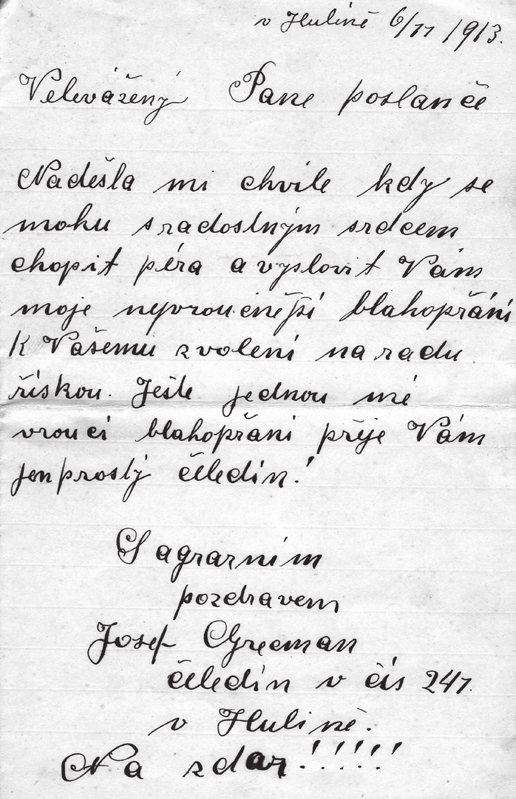 v Hulíně 6/11 1913.
Velevážený Pane poslanče
Naděšla mi chvíle kdy se
mohu s radostným srdcem
chopit péra a vyslovit Vám
moje nejvroucnější blahopřání
K Vašemu zvolení na radu
říškou. Ješte jednou mé
vroucí blahopřání přije Vám
jen prostý čeledín!
S agrarním
pozdravem
Josef
čeledín v čís 247.
v Hulíně.
Na zdar!!!!!